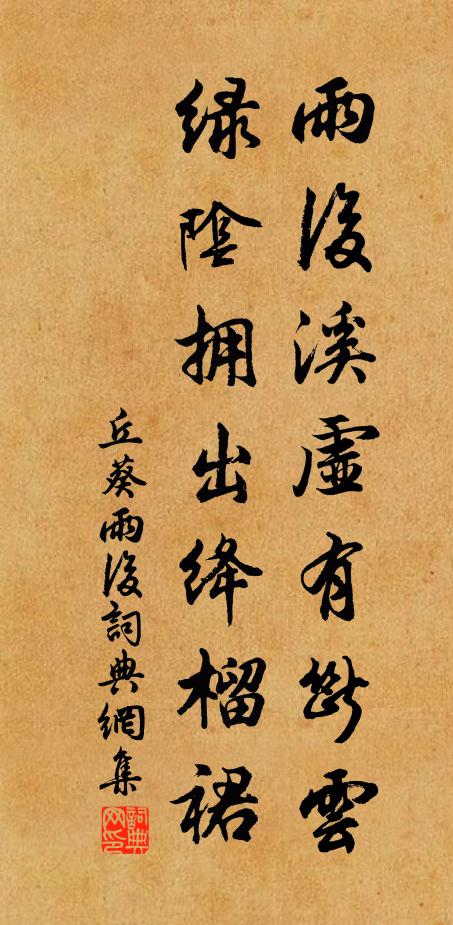 雨後溪虛有斷雲
綠陰擁出絳榴裙
丘葵雨後詞典網集
詞典網印